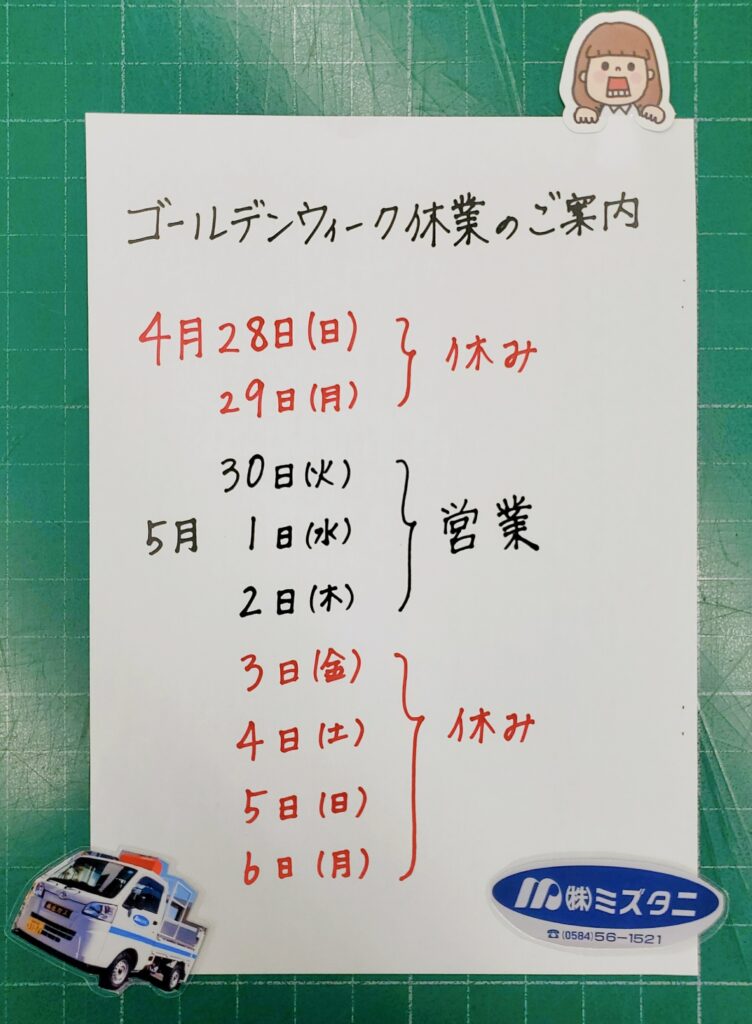 ゴールデンウィーク休業のご案内
4月28日(日)
29日(月)
休み
30日(火)
5月 1日(水)
2日(木)
営業
3日(金)
4日(土)
5日(日)
6日(月)
休み
㈱ミズタニ
☎(0584)56-1521